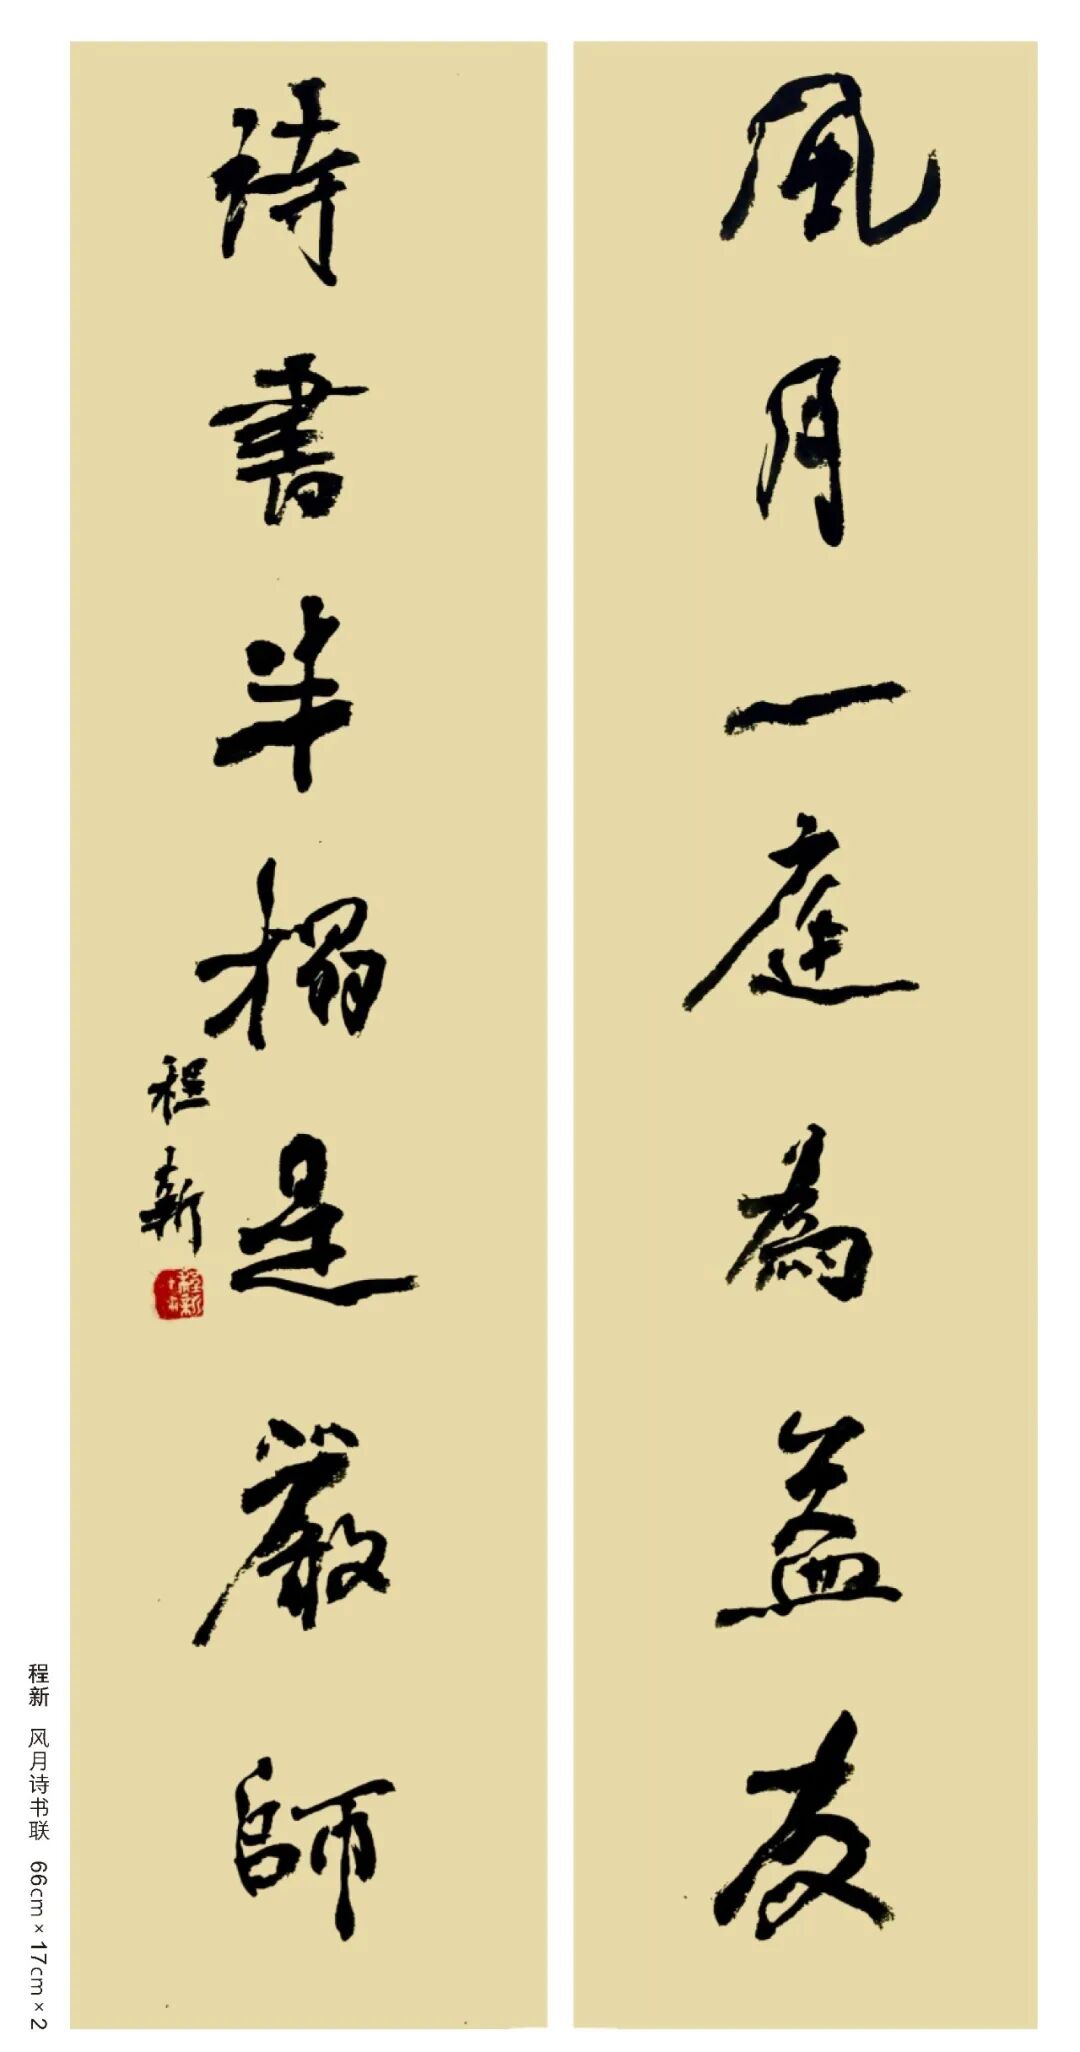 風月一庭為益友
詩書半榻是嚴師
程新
程新
程新 风月诗书联 66cm×17cm×2